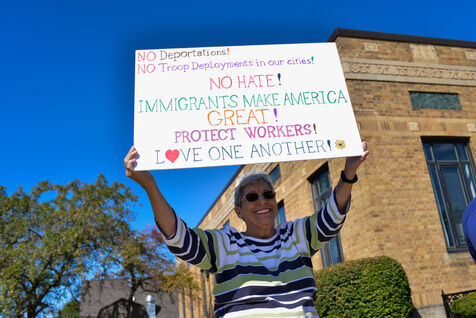 NO Deportations!
NO Troop Deployments in our cities!
NO HATE!
IMMIGRANTS MAKE AMERICA
GREAT!
PROTECT WORKERS!
LOVE ONE ANOTHER!